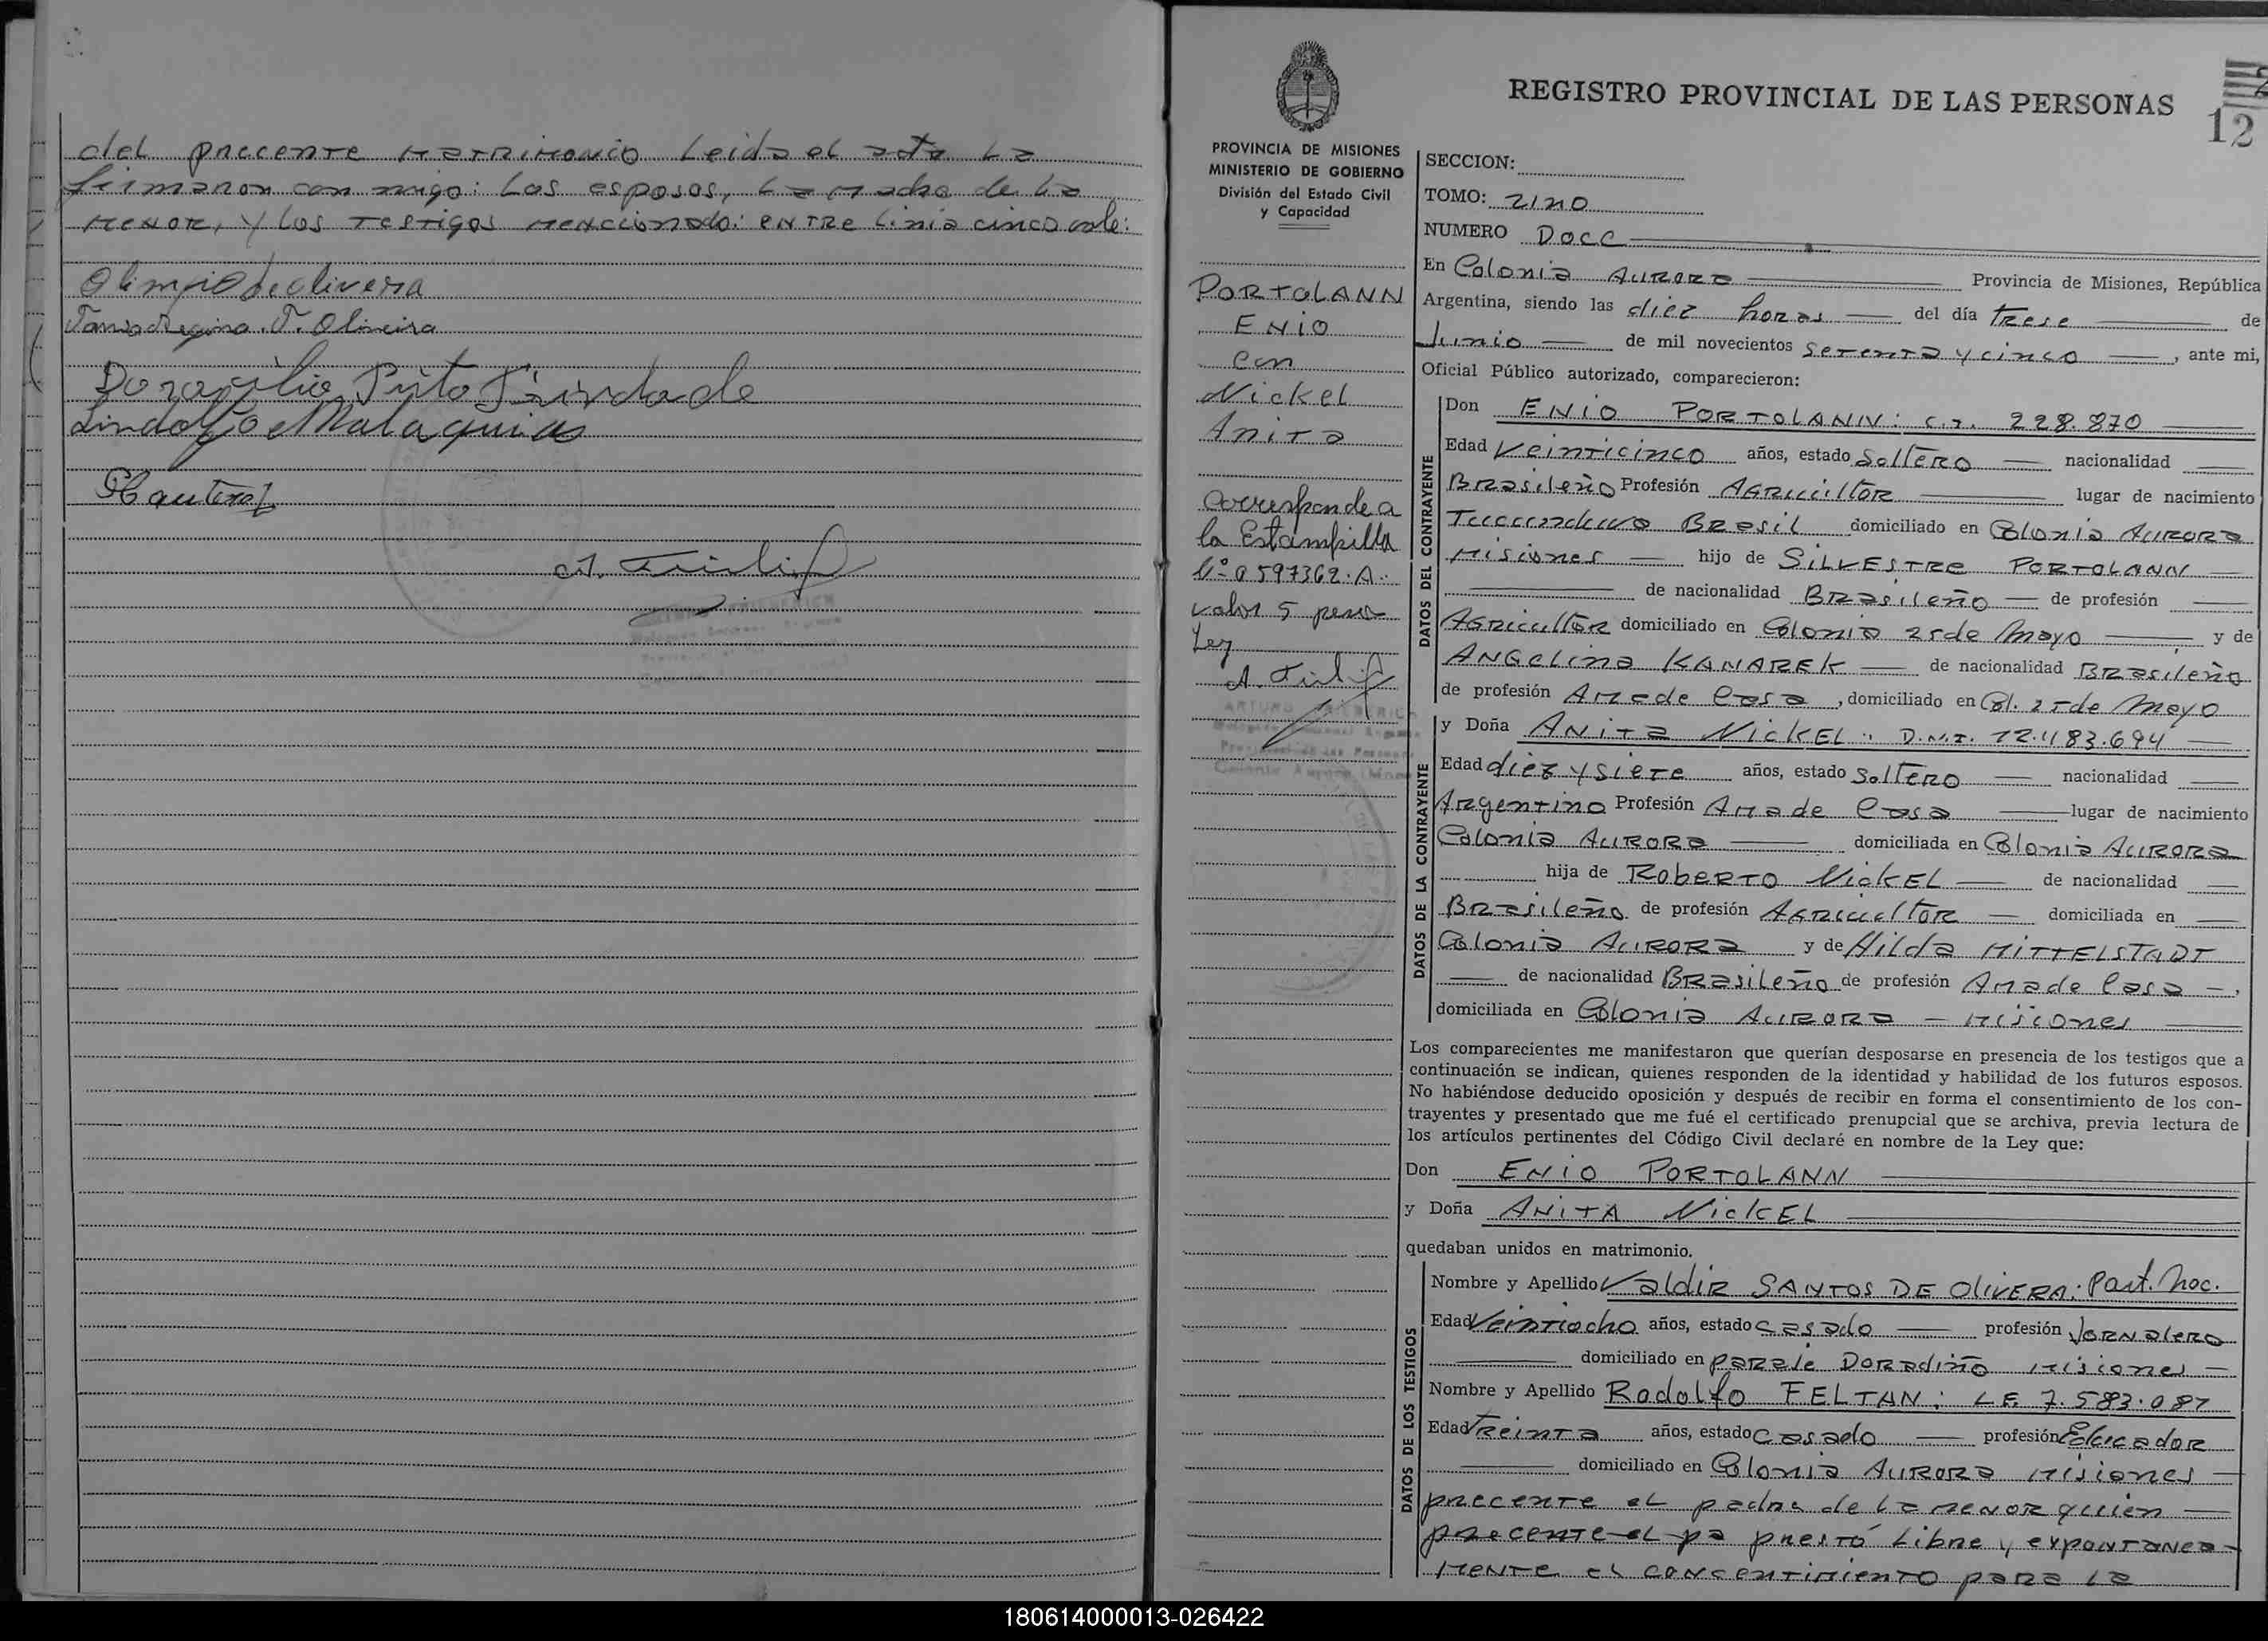 del precente matrimonio Leida el acta La
firmaron con migo: Los esposos, La madre de La
menor, y Los testigos mencionado: entre Linia cinco vale:
Olimpio de oliveira
Tania Regina. T. Oliveira
Doraxilio Pinto Trindade
Lindolfo Malaquias
REGISTRO PROVINCIAL DE LAS PERSONAS
12
PROVINCIA DE MISIONES
MINISTERIO DE GOBIERNO
División del Estado Civil
y Capacidad
PORTOLANN
ENIO
con
Nickel
Anita
Corresponde a
la Estampilla
Nº 0597362.A.
valor 5 pesos
Ley
ARTURO FRIEBERICH
SECCION:
TOMO: UNO
NUMERO DOCE
En Colonia AURORA Provincia de Misiones, República
Argentina, siendo las diez horas del día trese de
Junio de mil novecientos setenta y cinco, ante mi,
Oficial Público autorizado, comparecieron:
DATOS DEL CONTRAYENTE
Don ENIO PORTOLANN: C.I. 228.870
Edad Veinticinco años, estado Soltero nacionalidad
Brasileño Profesión Agricultor lugar de nacimiento
Tucunduva Brasil domiciliado en Colonia AURORA
Misiones hijo de SILVESTRE PORTOLANN
de nacionalidad Brasileño de profesión
Agricultor domiciliado en Colonia 25 de Mayo y de
ANGELINA KANAREK de nacionalidad Brasileño
de profesión Ama de Casa, domiciliado en Col. 25 de Mayo
DATOS DE LA CONTRAYENTE
y Doña ANITA NICKEL: D.N.I. 12.483.694
Edad diez y siete años, estado Soltero nacionalidad
Argentino Profesión Ama de Casa lugar de nacimiento
Colonia AURORA domiciliada en Colonia AURORA
hija de ROBERTO NICKEL de nacionalidad
Brasileño de profesión Agricultor domiciliada en
Colonia AURORA y de Hilda MITTELSTADT
de nacionalidad Brasileño de profesión Ama de Casa,
domiciliada en Colonia AURORA - Misiones
Los comparecientes me manifestaron que querían desposarse en presencia de los testigos que a
continuación se indican, quienes responden de la identidad y habilidad de los futuros esposos.
No habiéndose deducido oposición y después de recibir en forma el consentimiento de los con-
trayentes y presentado que me fué el certificado prenupcial que se archiva, previa lectura de
los artículos pertinentes del Código Civil declaré en nombre de la Ley que:
Don ENIO PORTOLANN
y Doña ANITA NICKEL
quedaban unidos en matrimonio.
DATOS DE LOS TESTIGOS
Nombre y Apellido Valdir SANTOS DE OLIVERA: Part. Noc.
Edad Veintiocho años, estado casado profesión Jornalero
domiciliado en paraje Doradiño Misiones
Nombre y Apellido Rodolfo FELTAN: L.E. 7.583.087
Edad Treinta años, estado casado profesión Educador
domiciliado en Colonia AURORA Misiones
precente el padre de La menor quien
precente el pa prestó Libre y expontanea-
mente el concentimiento para La
180614000013-026422